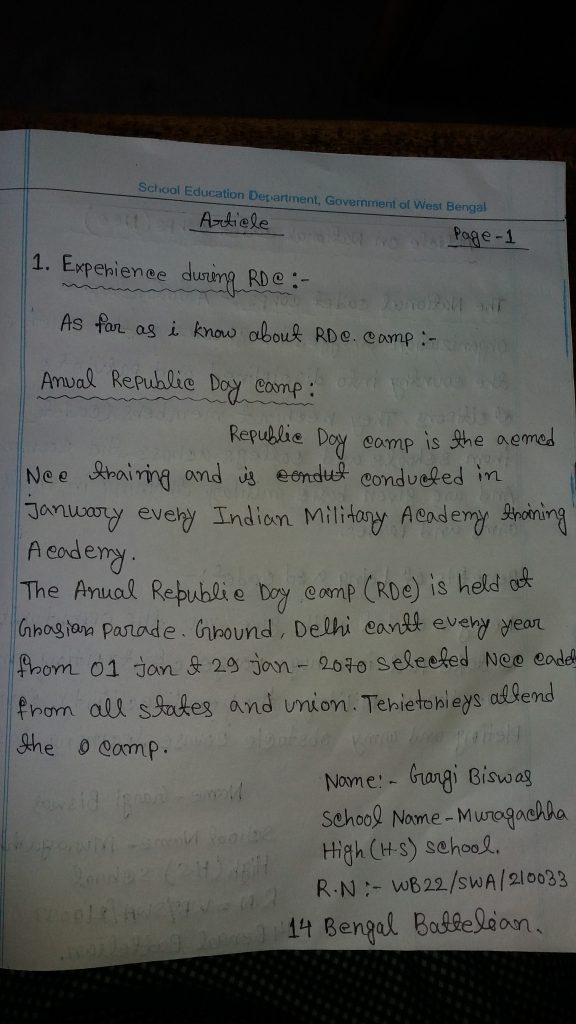 School Education Department, Government of West Bengal
Article
Page-1
1. Experience during RDC :-
As far as i know about RDC. camp :-
Anual Republic Day camp :
Republic Day camp is the acmed
Ncc training and is conduct conducted in
January every Indian Military Academy training
Academy.
The Anual Republic Day camp (RDC) is held at
Grasian Parade. Ground, Delhi cantt every year
from 01 Jan & 29 Jan - 2070 selected Ncc cadet
from all states and union. Terietorieys attend
the camp.
Name:- Gargi Biswas
School Name - Muragachha
High (H.S) School.
R.N :- WB22/SWA/210033
14 Bengal Battelian.